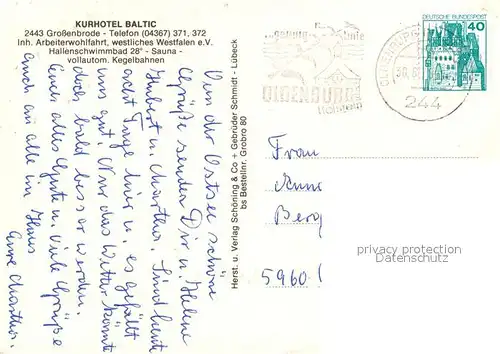 KURHOTEL BALTIC
2443 Großenbrode - Telefon (04367) 371, 372
Inh. Arbeiterwohlfahrt, westliches Westfalen e.V.
Hallenschwimmbad 28° - Sauna -
vollautom. Kegelbahnen
Von der Ostsee schöne
Grüße senden Dir u. Helene
Hubert u. Martha. Sind heute
acht Tage hier u. es gefällt
uns gut. Nur das Wetter könnte
doch bald besser werden.
Euch alles Gute u. viele Grüße
auch an alle im Haus
Eure Martha.
Herst. u. Verlag Schöning & Co + Gebrüder Schmidt - Lübeck
bs Bestellnr. Grobro 80
OLDENBURG
(Holstein)
OLDENBURG
244
DEUTSCHE BUNDESPOST
40
Frau
Anne
Berg
5960
privacy protection
Datenschutz